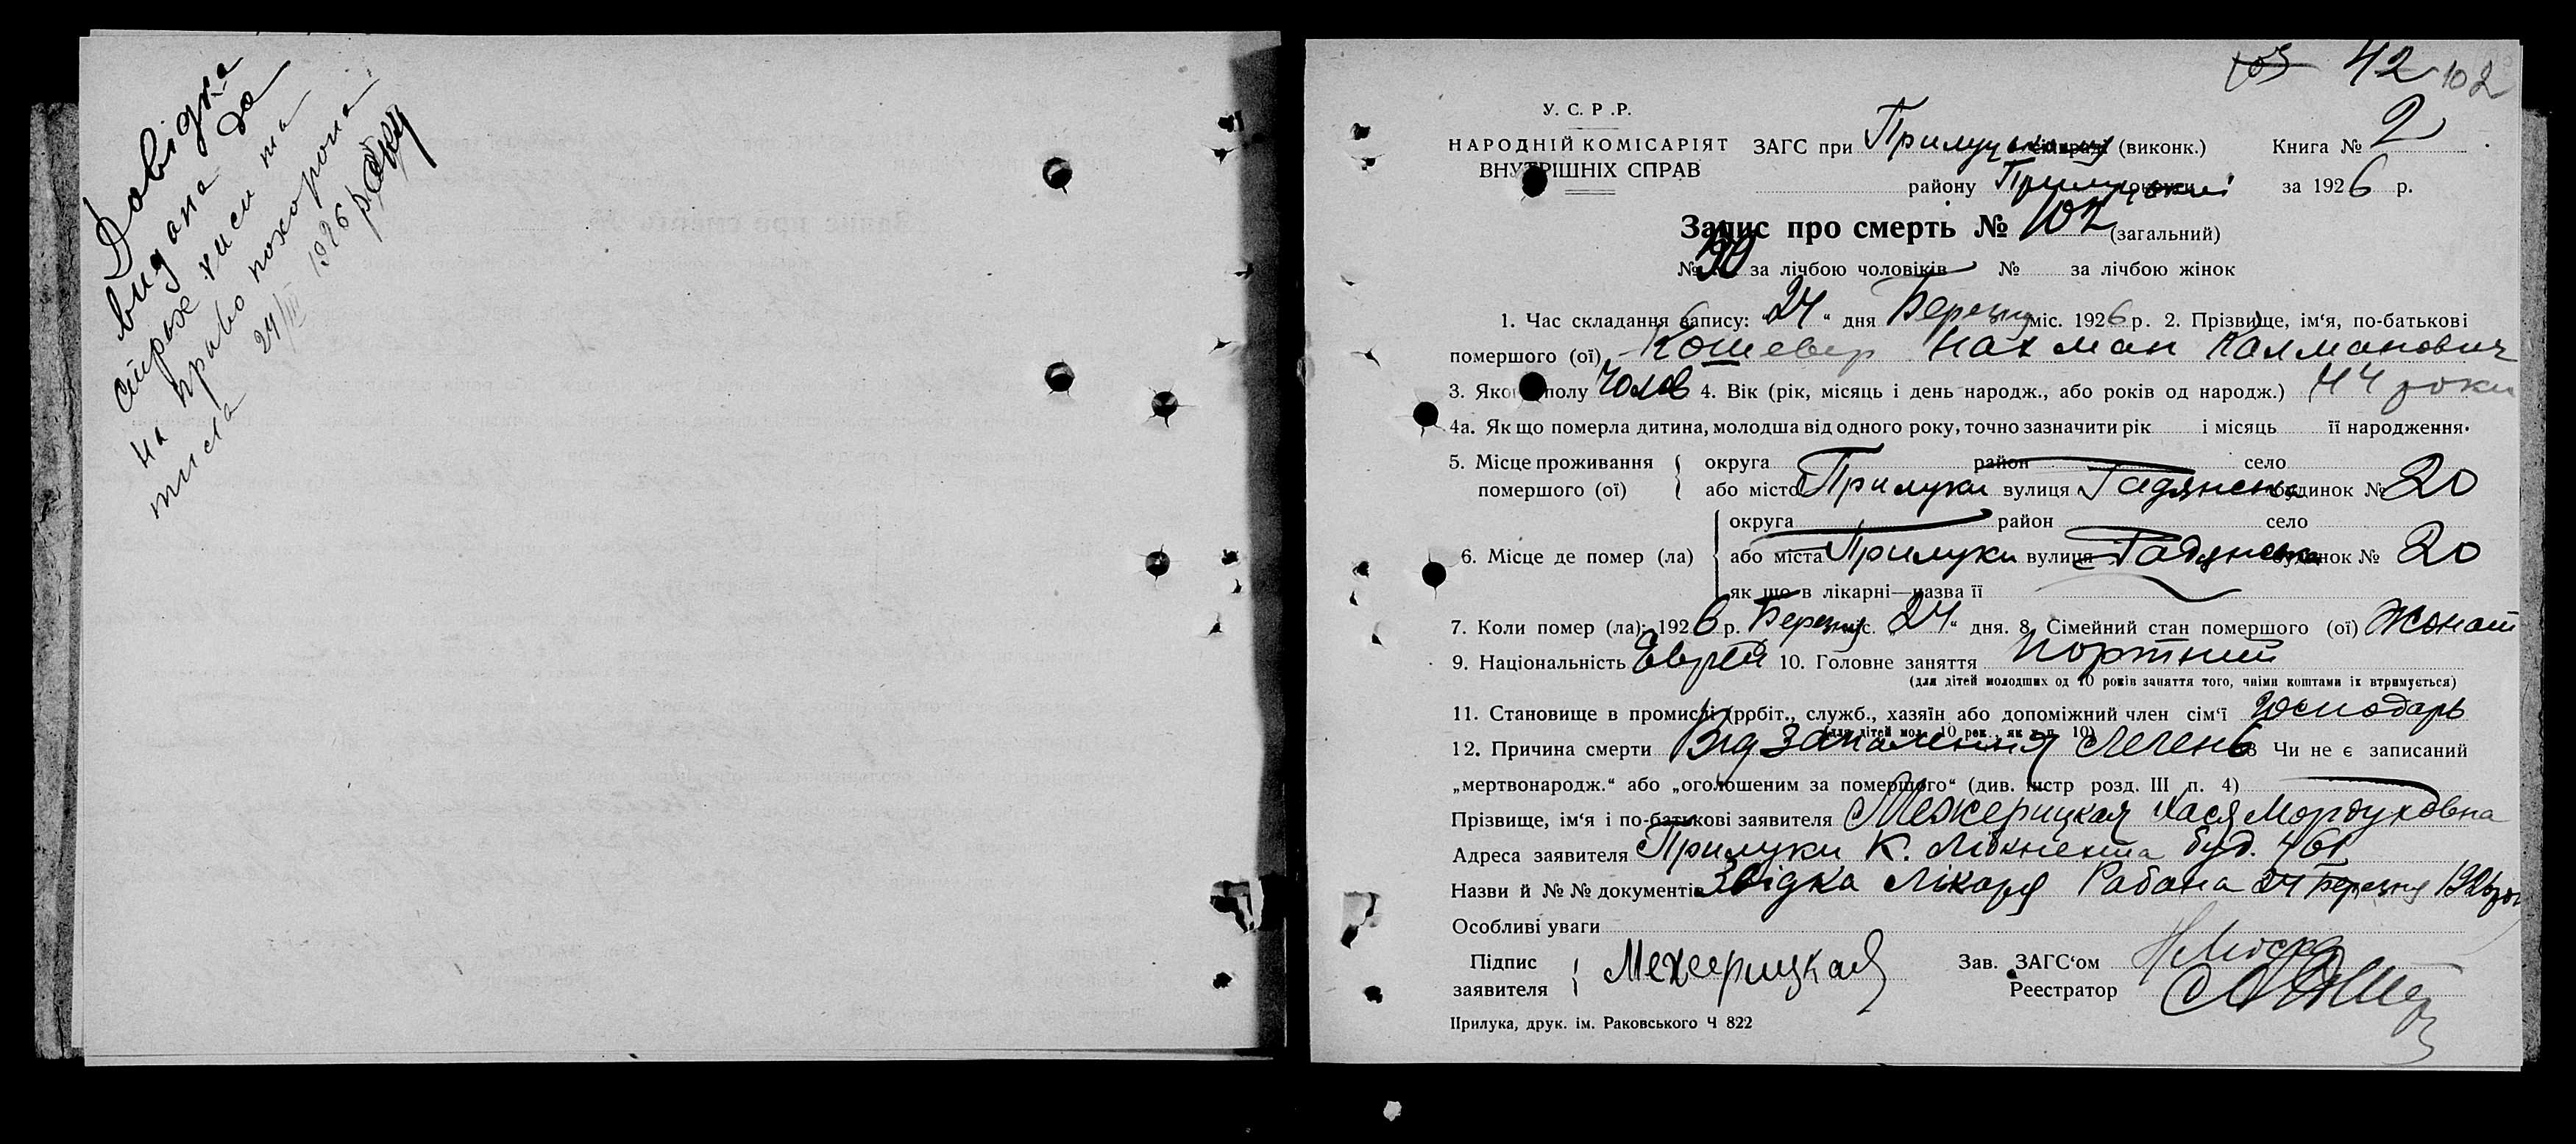 Довідка
видана до
страх каси та
на право похорона
тіла 24/III 1926 року
103 42 102
У. С. Р .Р.
НАРОДНІЙ КОМІСАРІЯТ
ВНУТРІШНІХ СПРАВ
ЗАГС при Прилуцькому (виконк.) Книга № 2
району Прилуцької за 1926 р.
Запис про смерть № 102 (загальний)
№ за лічбою чоловіків № за лічбою жінок
1. Час складання запису: „24“ дня Березня міс. 1926 р. 2. Прізвище, ім‘я, по-батькові
помершого (ої) Кошевер Нахман Калманович
3. Якого полу Чолов 4. Вік (рік, місяць і день народж., або років од народж.) 44 роки
4а. Як що померла дитина, молодша від одного року, точно зазначити рік і місяць її народження.
5. Місце проживання помершого (ої) округа район село
або місто Прилуки вулиця будинок № 20
6. Місце де помер (ла) округа район село
або міста Прилуки вулиця будинок № 20
як що в лікарні—назва її
7. Коли помер (ла): 1926 р. Березня міс. „24“ дня. 8. Сімейний стан помершого (ої) Жонат
9. Національність Еврей 10. Головне заняття Портний
(для дітей молодших од 10 років заняття того, чиїми коштами їх втримується)
11. Становище в промислі (робіт., служб., хазяїн або допоміжний член сім‘ї Господарь
(для дітей мол. 10 рок., як в п. 10)
12. Причина смерти Від Запалення Легень 13 Чи не є записаний
„мертвонародж.“ або „оголошеним за помершого“ (див. інстр розд. III п. 4)
Прізвище, ім‘я і по-батькові заявителя Межерицкая Хася Мордуховна
Адреса заявителя Прилуки К. Лібкнехта буд. 461
Назви й № № документів Звідка Лікаря Рабана 24 березня 1926 рок
Особливі уваги
Підпис заявителя Межерицкая
Зав. ЗАГС‘ом
Реестратор
Прилука, друк. ім. Раковського Ч 822